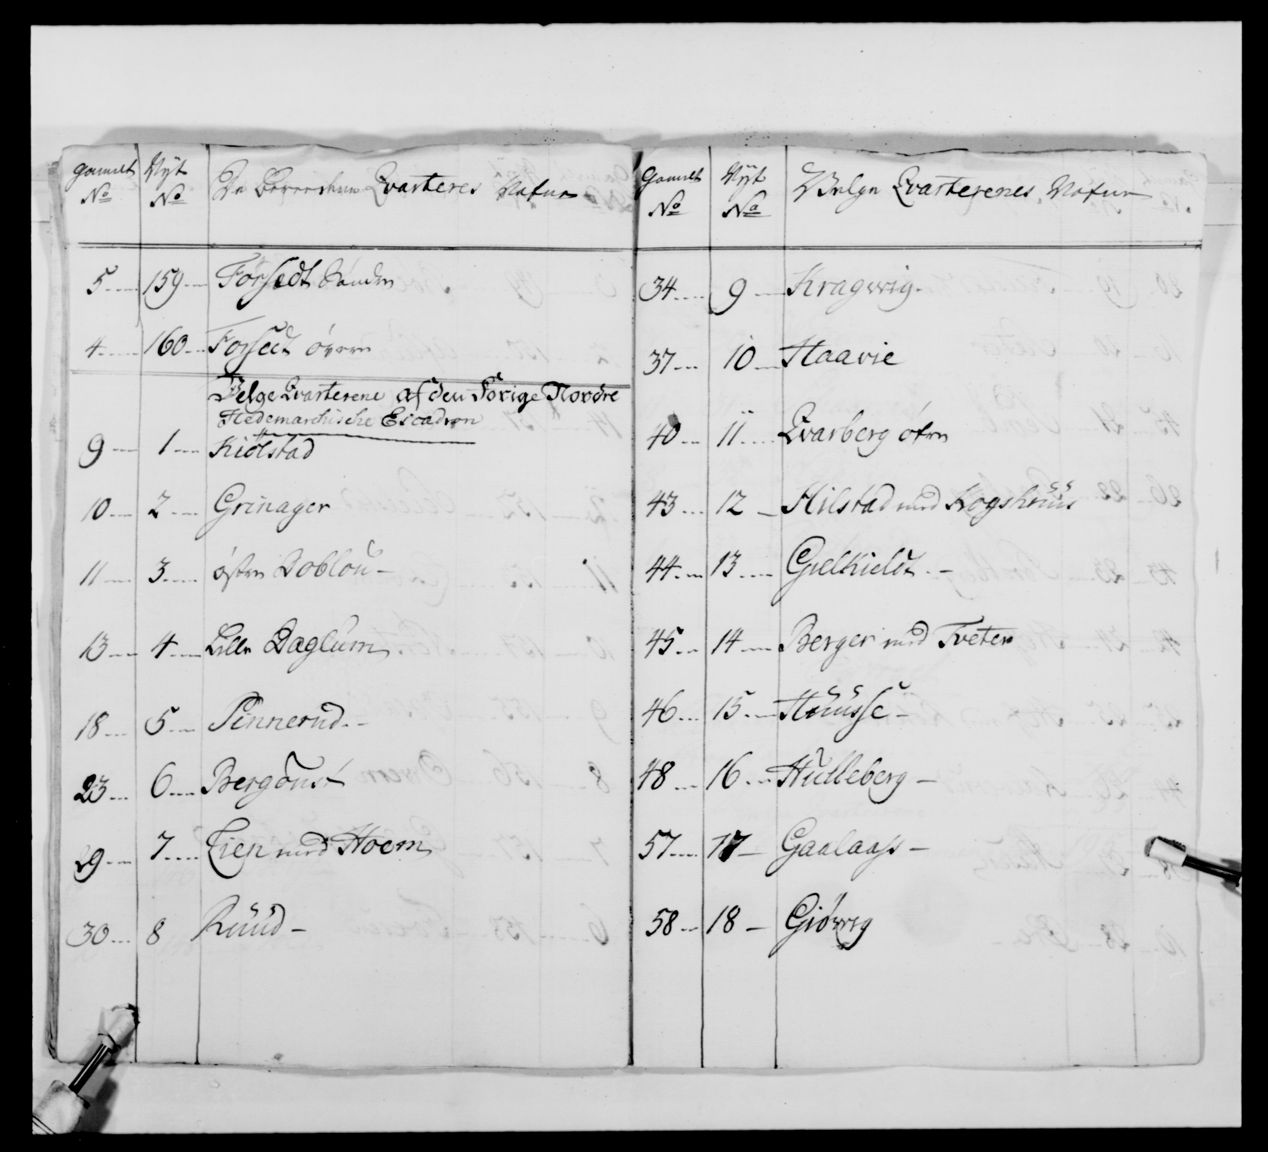 Gamelt No Nyt No De Qvarteres Nafne
5 159 Forsedt Søndre
4 160 Forsedt øvre
Følge Qvarterene af den Forige Nordre
Hedemarchische Escadron
9 1 Kiølstad
10 2 Grinager
11 3 østre Doblou
13 4 Lille Daglum
18 5 Pinnerud
23 6 Bergsust
29 7 Lien med Hoem
30 8 Ruud
Gamelt No Nyt No Følge Qvarterenes Nafne
34 9 Kragvig
37 10 Haavie
40 11 Qvarberg øfre
43 12 Hilstad med Kogshuus
44 13 Gielkield
45 14 Berger med Tveter
46 15 Huusse
48 16 Hulleberg
57 17 Gaalaass
58 18 Giøvig